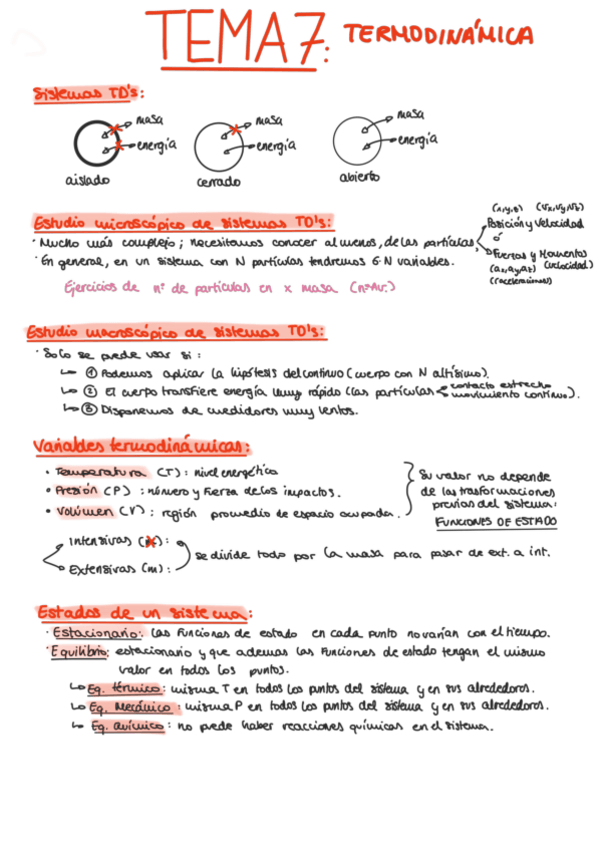 TEMA 7: TERMODINÁMICA
Sistemas TD's:
masa
energía
aislado
masa
energía
cerrado
masa
energía
abierto
Estudio microscópico de sistemas TD's:
· Mucho más complejo; necesitamos conocer al menos, de las partículas,
(x,y,z) (Vx,Vy,Vz)
Posición y Velocidad
ó
Fuerzas y Momentos
(ax,ay,az) (velocidad)
(aceleraciones)
· En general, en un sistema con N partículas tendremos 6·N variables.
Ejercicios de nº de partículas en x masa (nºAv.)
Estudio macroscópico de sistemas TD's:
· Solo se puede usar si:
① Podemos aplicar la hipótesis del continuo (cuerpo con N altísimo).
② El cuerpo transfiere energía muy rápido (las partículas contacto estrecho
movimiento continuo).
③ Disponemos de medidores muy lentos.
Variables termodinámicas:
• Temperatura (T): nivel energético
• Presión (P): número y fuerza de los impactos.
• Volúmen (V): región promedio de espacio ocupada.
Su valor no depende
de las trasformaciones
previas del sistema:
FUNCIONES DE ESTADO
Intensivas (m):
Extensivas (m):
se divide todo por la masa para pasar de ext. a int.
Estados de un sistema:
· Estacionario: las funciones de estado en cada punto no varían con el tiempo.
· Equilibrio: estacionario y que ademas las funciones de estado tengan el mismo
valor en todos los puntos.
Eq. térmico: misma T en todos los puntos del sistema y en sus alrededores.
Eq. Mecánico: misma P en todos los puntos del sistema y en sus alrededores.
Eq. químico: no puede haber reacciones químicas en el sistema.